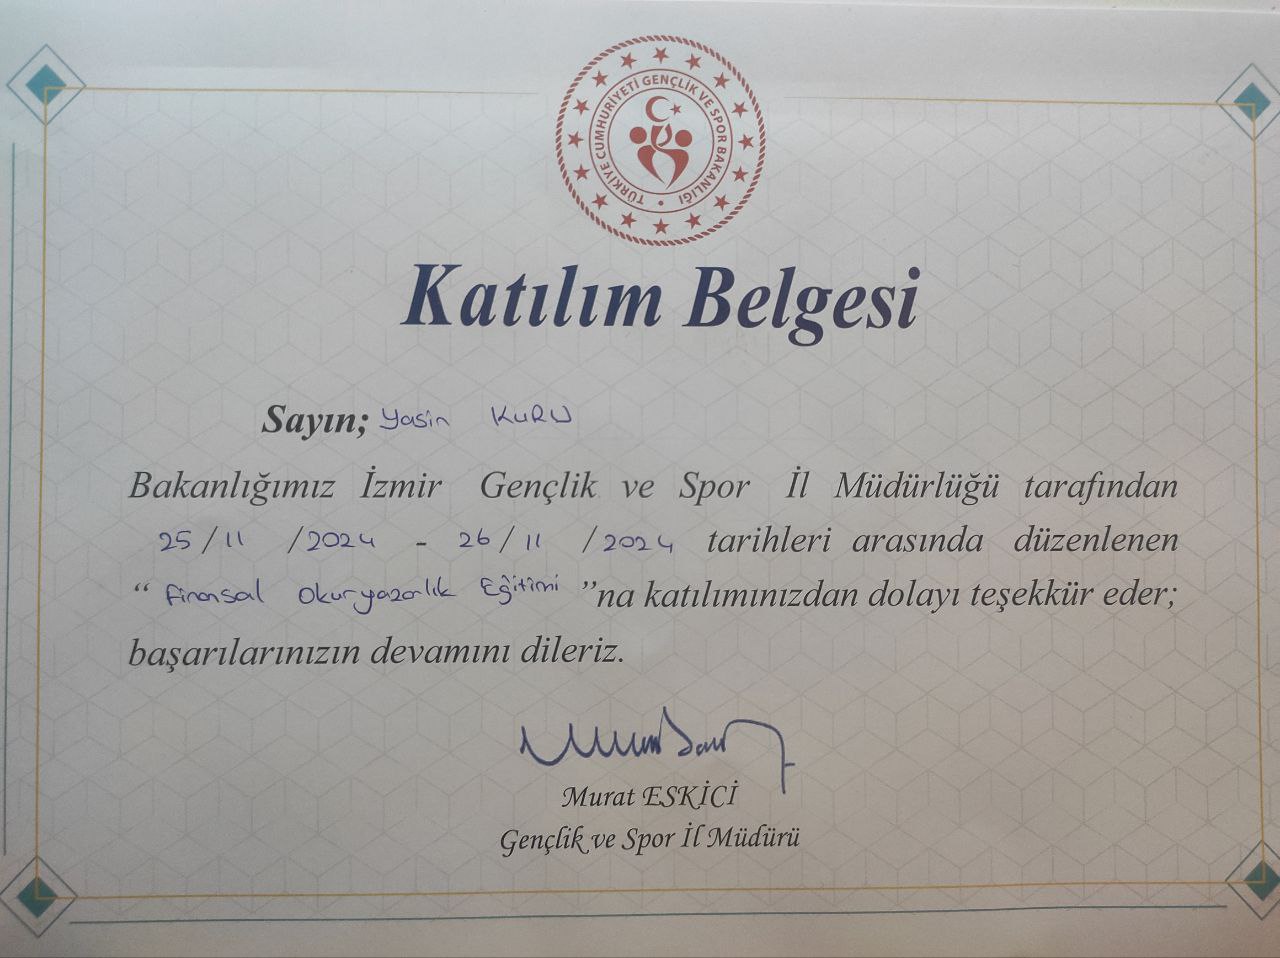 TÜRKİYE CUMHURİYETİ GENÇLİK VE SPOR BAKANLIĞI
Katılım Belgesi
Sayın; Yasin KURU
Bakanlığımız İzmir Gençlik ve Spor İl Müdürlüğü tarafından
25/11/2024 - 26/11/2024 tarihleri arasında düzenlenen
“Finansal Okuryazarlık Eğitimi”na katılımınızdan dolayı teşekkür eder;
başarılarınızın devamını dileriz.
Murat ESKİCİ
Gençlik ve Spor İl Müdürü